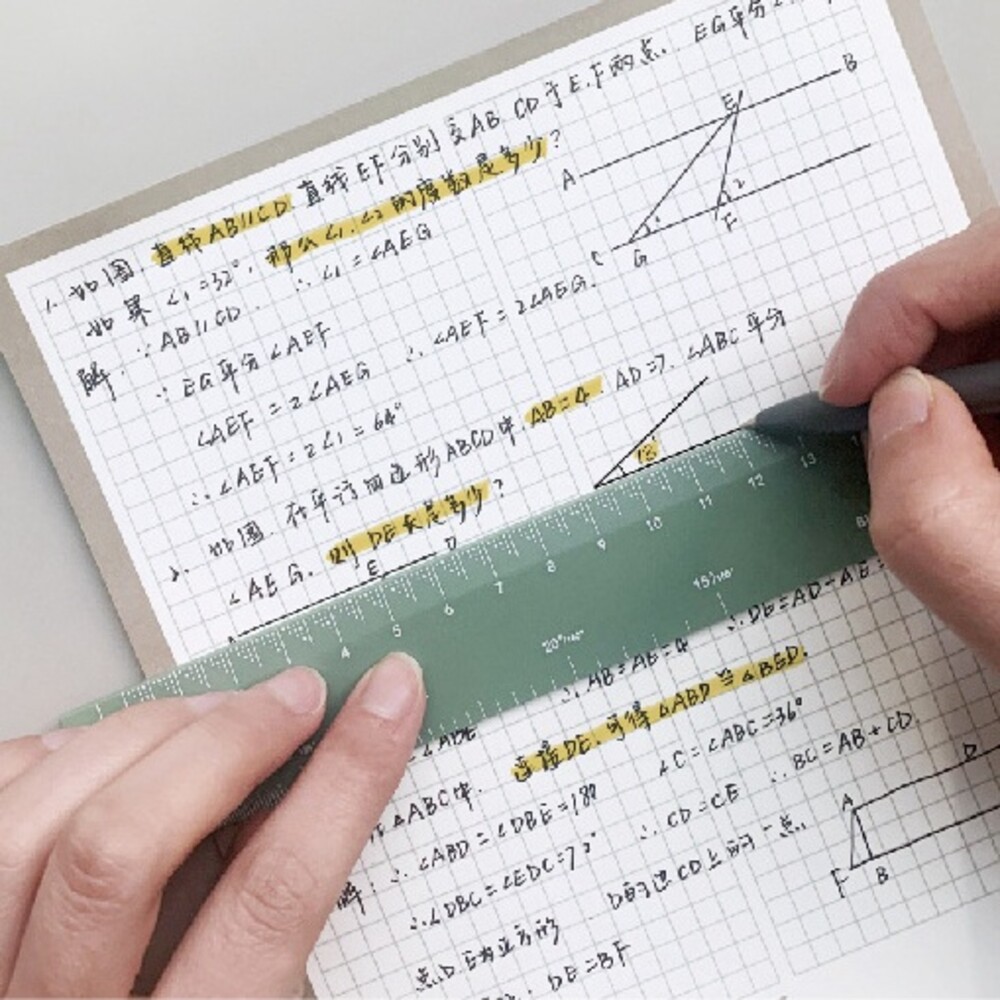 1. 如图. 直线AB//CD. 直线EF分别交AB CD于E.F两点. EG平分∠
如果 ∠1=32°. 那么∠1.∠2的度数是多少?
解. ∵AB//CD. ∴∠1=∠AEG
∵EG平分∠AEF
∠AEF=2∠AEG ∴∠AEF=2∠AEG.
∴∠AEF=2∠1=64°
A
B
E
C
G
F
1
2
2. 如图. 在平行四边形ABCD中. AB=4. AD=7. ∠ABC平分
∠AEG. 则DE长是多少?
E
D
4 5 6 7 8 9 10 11 12 13
20°
15°
∴AB=AE=4 ∴DE=AD-AE=
∠ABE
连接DE.可得∠ABD≌∠BED.
△ABC中. ∠C=∠ABC=36°
解: ∴∠ABD=∠DBE=18° ∴BC=AB+CD.
∴∠DBC=∠EDC=72° ∴CD=CE
点D E为正方形 D的边CD上的一点.
DE=BF
A
D
F
B